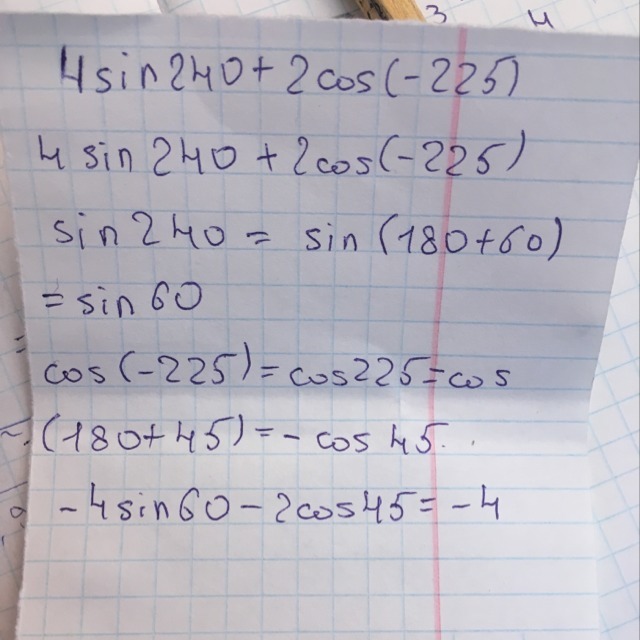 4sin240+2cos(-225)
4 sin 240 + 2cos(-225)
sin 240 = sin (180+60)
= sin 60
cos (-225)=cos225=cos
(180+45)=- cos 45.
-4sin60-2cos45=-4